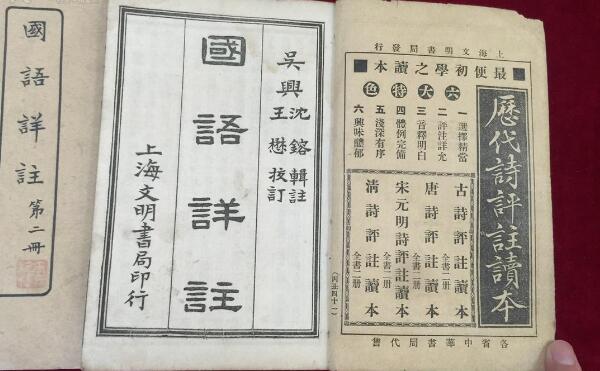 歷代詩評註讀本
上海文明書局發行
最便初學之讀本
六大特色
一 選擇精當
二 評注詳允
三 音釋明白
四 體例完備
五 淺深有序
六 興味醲郁
古詩評註讀本 全書二册
唐詩評註讀本 全書二册
宋元明詩評註讀本 全書二册
清詩評註讀本 全書二册
各省中華書局代售
吳興沈鎔輯註
王懋校訂
國語詳註
上海文明書局印行
國語詳註 第二冊